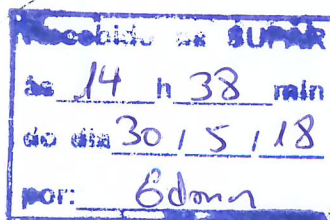 Recebido na SUPAR
às 14 h 38 min
do dia 30 / 5 / 18
por: